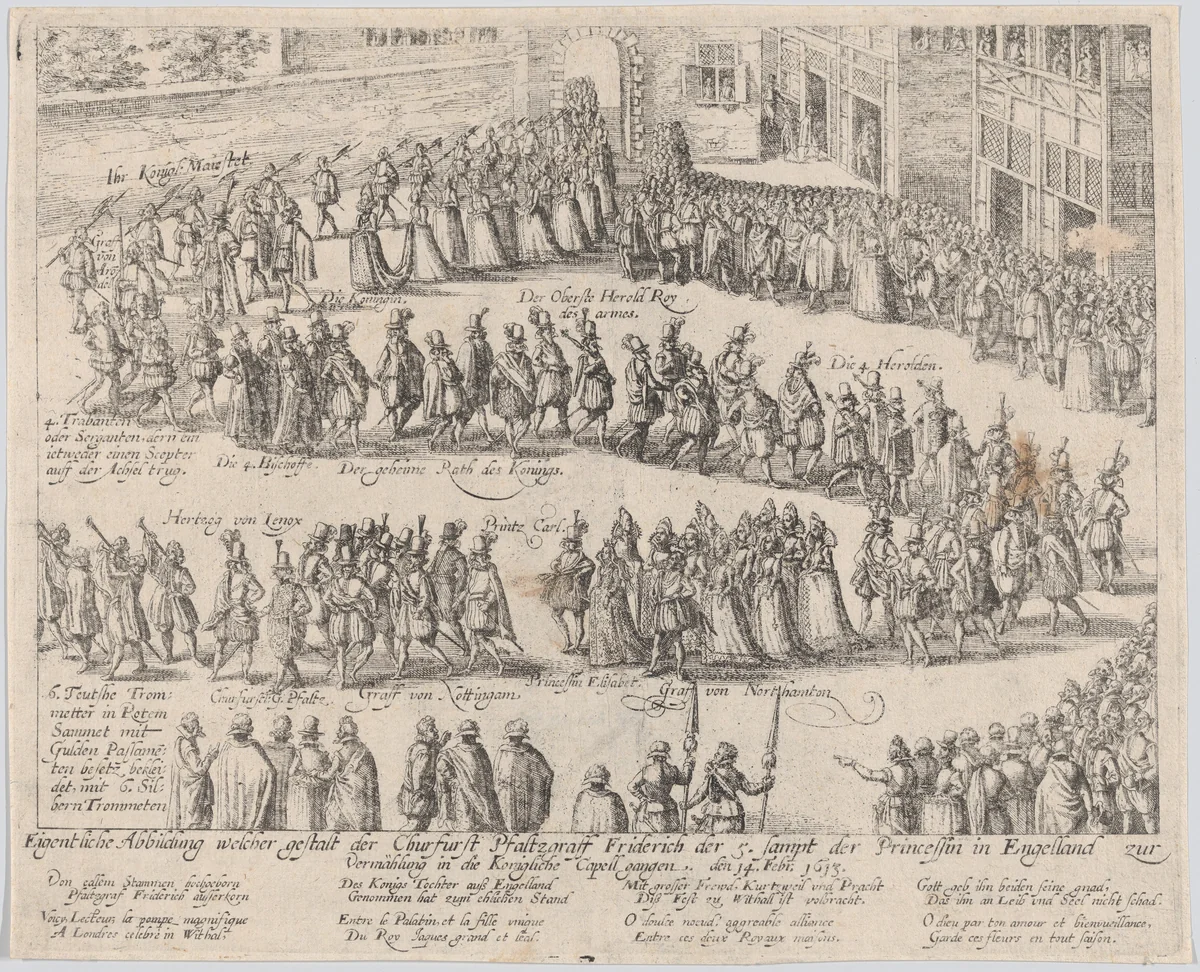 Ihr Königl: Maiestet
Graf
von
Arō
del
Die Konigin.
Der Oberste Herold Roy
des armes.
Die 4 Herolden.
4. Trabanten
oder Serganten, dern ein
ietweder einen Scepter
auff der Achsel trug.
Die 4. Bischoffe.
Der geheime Rath des Konings.
Hertzog von Lenox
Printz Carl.
6. Teutshe Trom:
metter in Rotem
Sammet mit
Gulden Passamē:
ten besetz, beklei:
det, mit 6. Sil:
bern Trommeten
Churfurst G. Pfaltz.
Graff von Nottingam
Princessin Elisabet.
Graf von Northamton
Eigentliche Abbildung welcher gestalt der Churfurst Pfaltzgraff Friderich der 5. sampt der Princessin in Engelland zur
Vermählung in die Konigliche Capell gangen. den 14. Febr. 1613.
Von edlem Stammen hochgeborn
Pfaltzgraf Friderich ausserkorn
Des Konigs Tochter auß Engelland
Genommen hat zum ehlichen Stand
Mit grosser Frewd, Kurtzweil vnd Pracht
Diß Fest zu Withall ist volbracht.
Gott geb ihn beiden seine gnad,
Das ihn an Leib vnd Seel nicht schad.
Voicy, Lecteur, la pompe magnifique
A Londres celebré in Withal,
Entre le Palatin, et la fille vnique
Du Roy Jaques grand et leal.
O doulce noeud, aggreable alliance
Entre ces deux Royaux maisons.
O dieu par ton amour et bienvueillance,
Garde ces fleurs en tout saison.